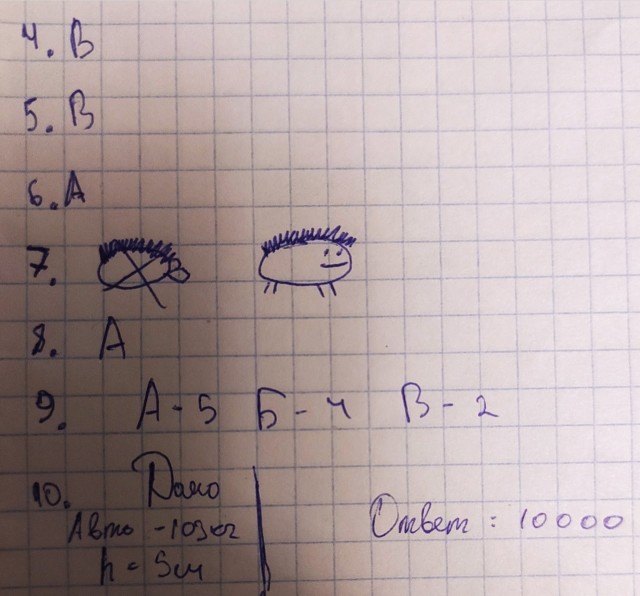 4. В
5. В
6. А
7.
8. А
9. А - 5 Б - 4 В - 2
10. Дано
Авто
h = 5см
Ответ: 10000